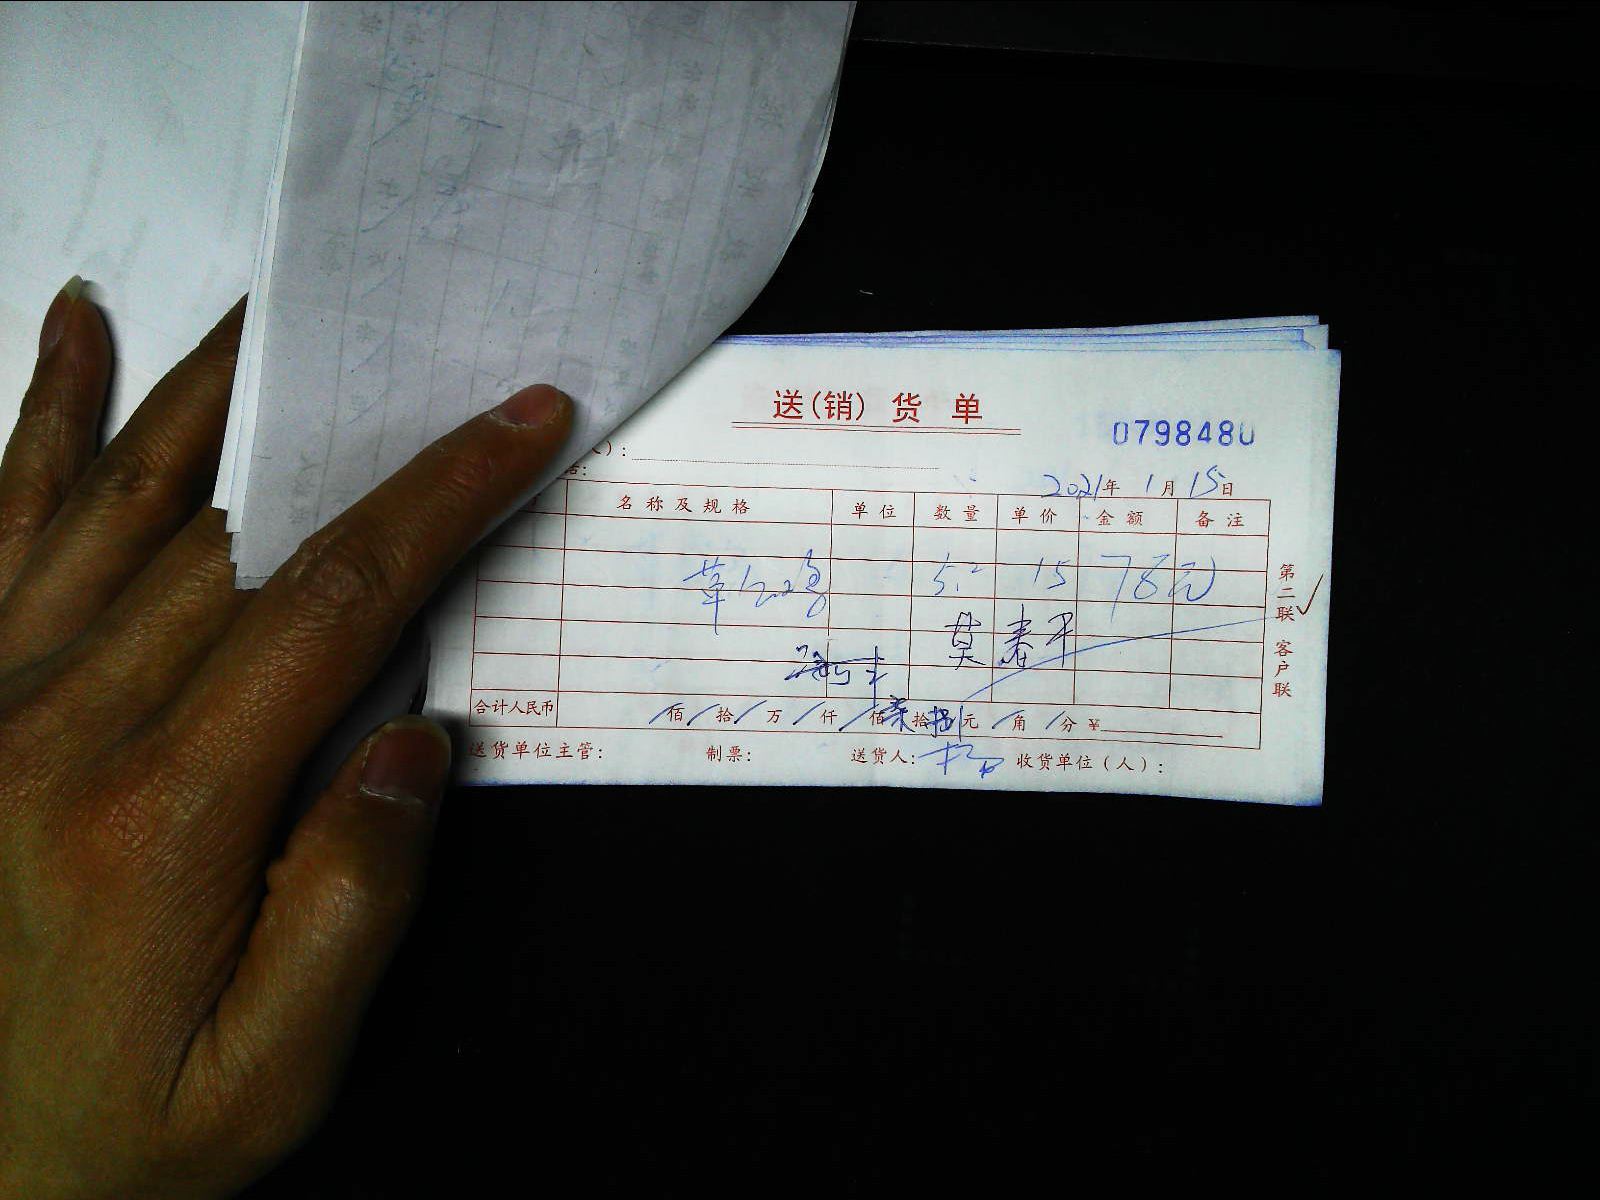 送(销)货单
0798480
人）：
话：
2021年 1月 15日
名称及规格 单位 数量 单价 金额 备注
草 5.2 15 78元
莫春平
合计人民币 佰 拾 万 仟 佰 柒拾捌元 角 分 ¥
送货单位主管： 制票： 送货人： 收货单位（人）：
第二联 客户联